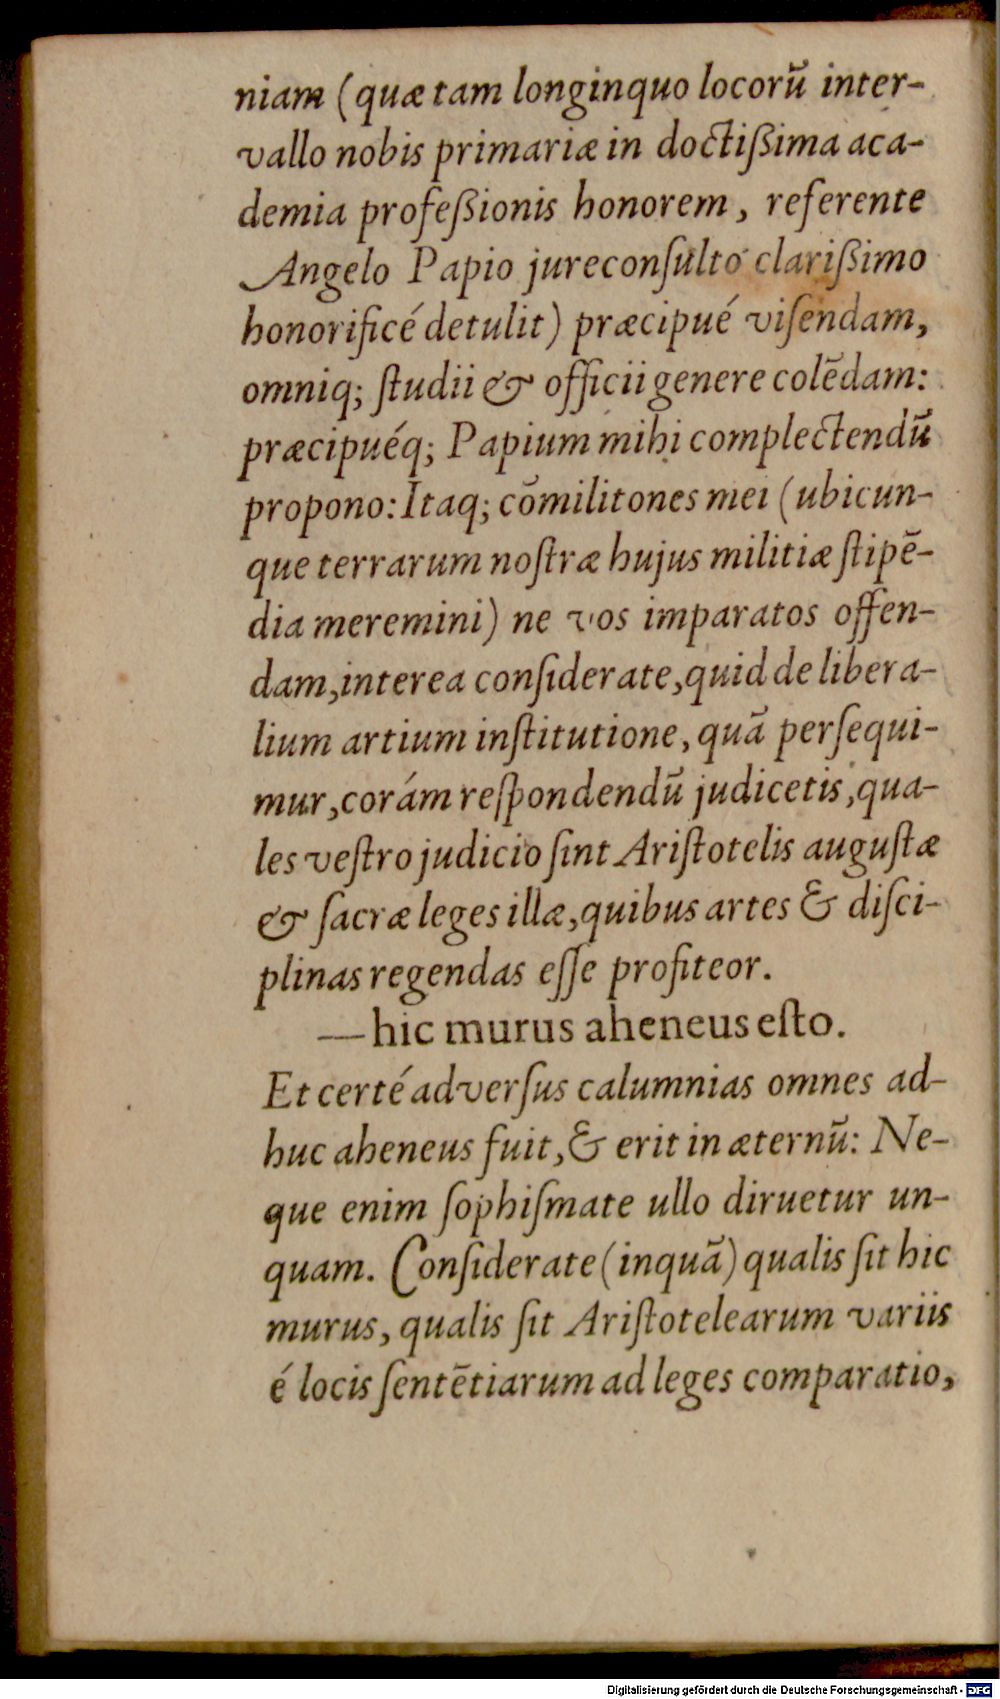 niam (quæ tam longinquo locorũ inter-
vallo nobis primariæ in doctiſſima aca-
demia profeſſionis honorem, referente
Angelo Papio jureconſulto clariſſimo
honorificé detulit) præcipué viſendam,
omniq; ſtudii & officii genere colẽdam:
præcipuéq; Papium mihi complectendũ
propono: Itaq; cõmilitones mei (ubicun-
que terrarum noſtræ hujus militiæ ſtipẽ-
dia meremini) ne vos imparatos offen-
dam, interea conſiderate, quid de libera-
lium artium inſtitutione, quã perſequi-
mur, corám reſpondendũ judicetis, qua-
les veſtro judicio ſint Ariſtotelis auguſtæ
& ſacræ leges illæ, quibus artes & diſci-
plinas regendas eſſe profiteor.
—hic murus aheneus eſto.
Et certé adverſus calumnias omnes ad-
huc aheneus fuit, & erit in æternũ: Ne-
que enim ſophiſmate ullo diruetur un-
quam. Conſiderate (inquã) qualis ſit hic
murus, qualis ſit Ariſtotelearum variis
é locis ſentẽtiarum ad leges comparatio,
Digitalisierung gefördert durch die Deutsche Forschungsgemeinschaft - DFG